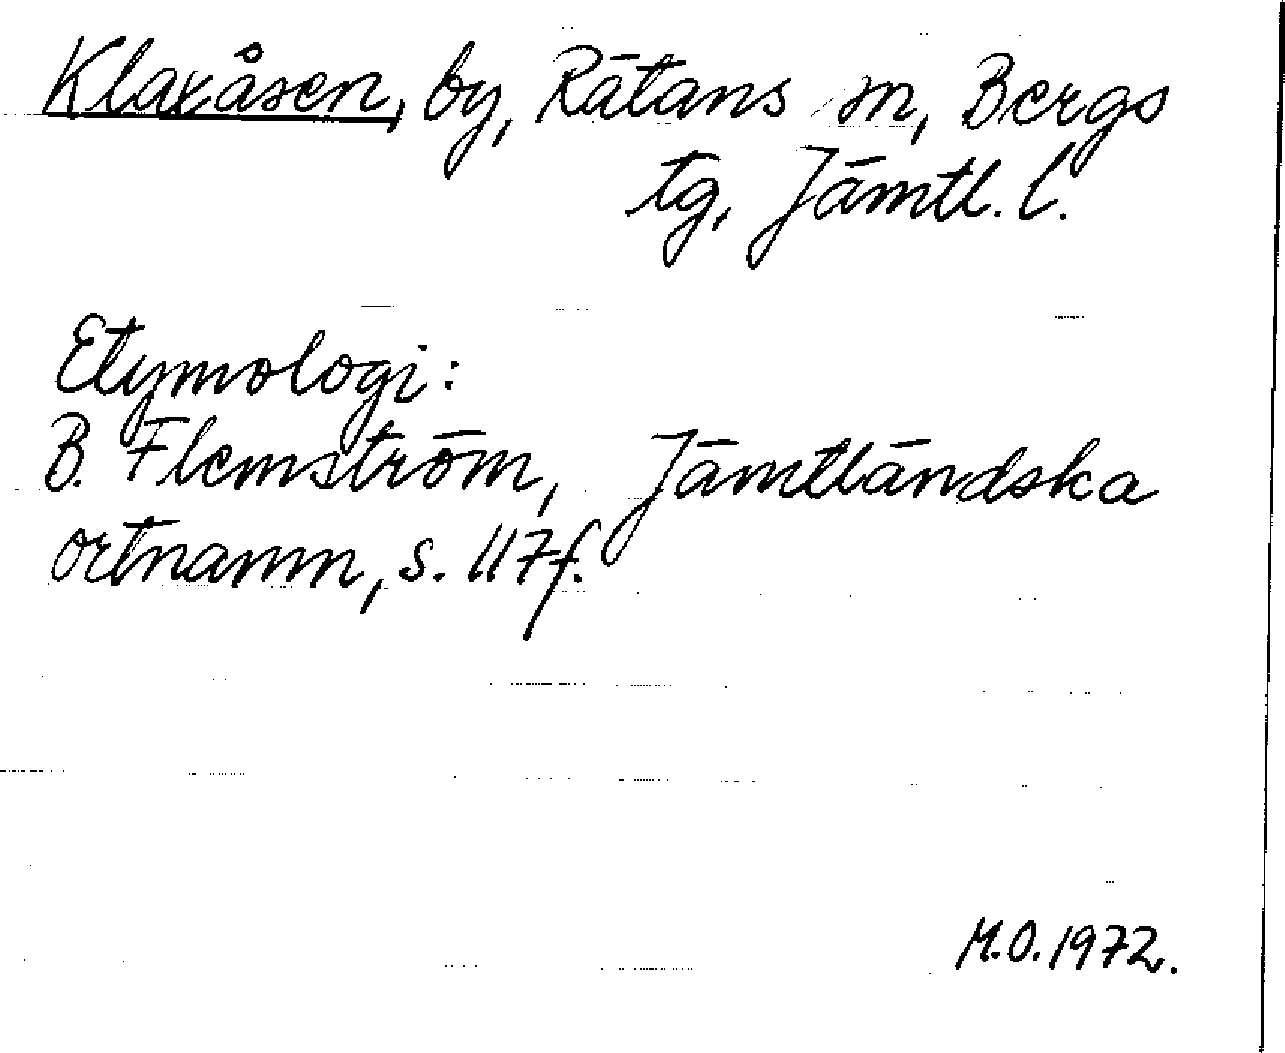 Klaxåsen, by, Rätans sn, Bergs
tg, Jämtl. l.
Etymologi:
B. Flemström, Jämtländska
ortnamn, s. 117f.
M.O. 1972.